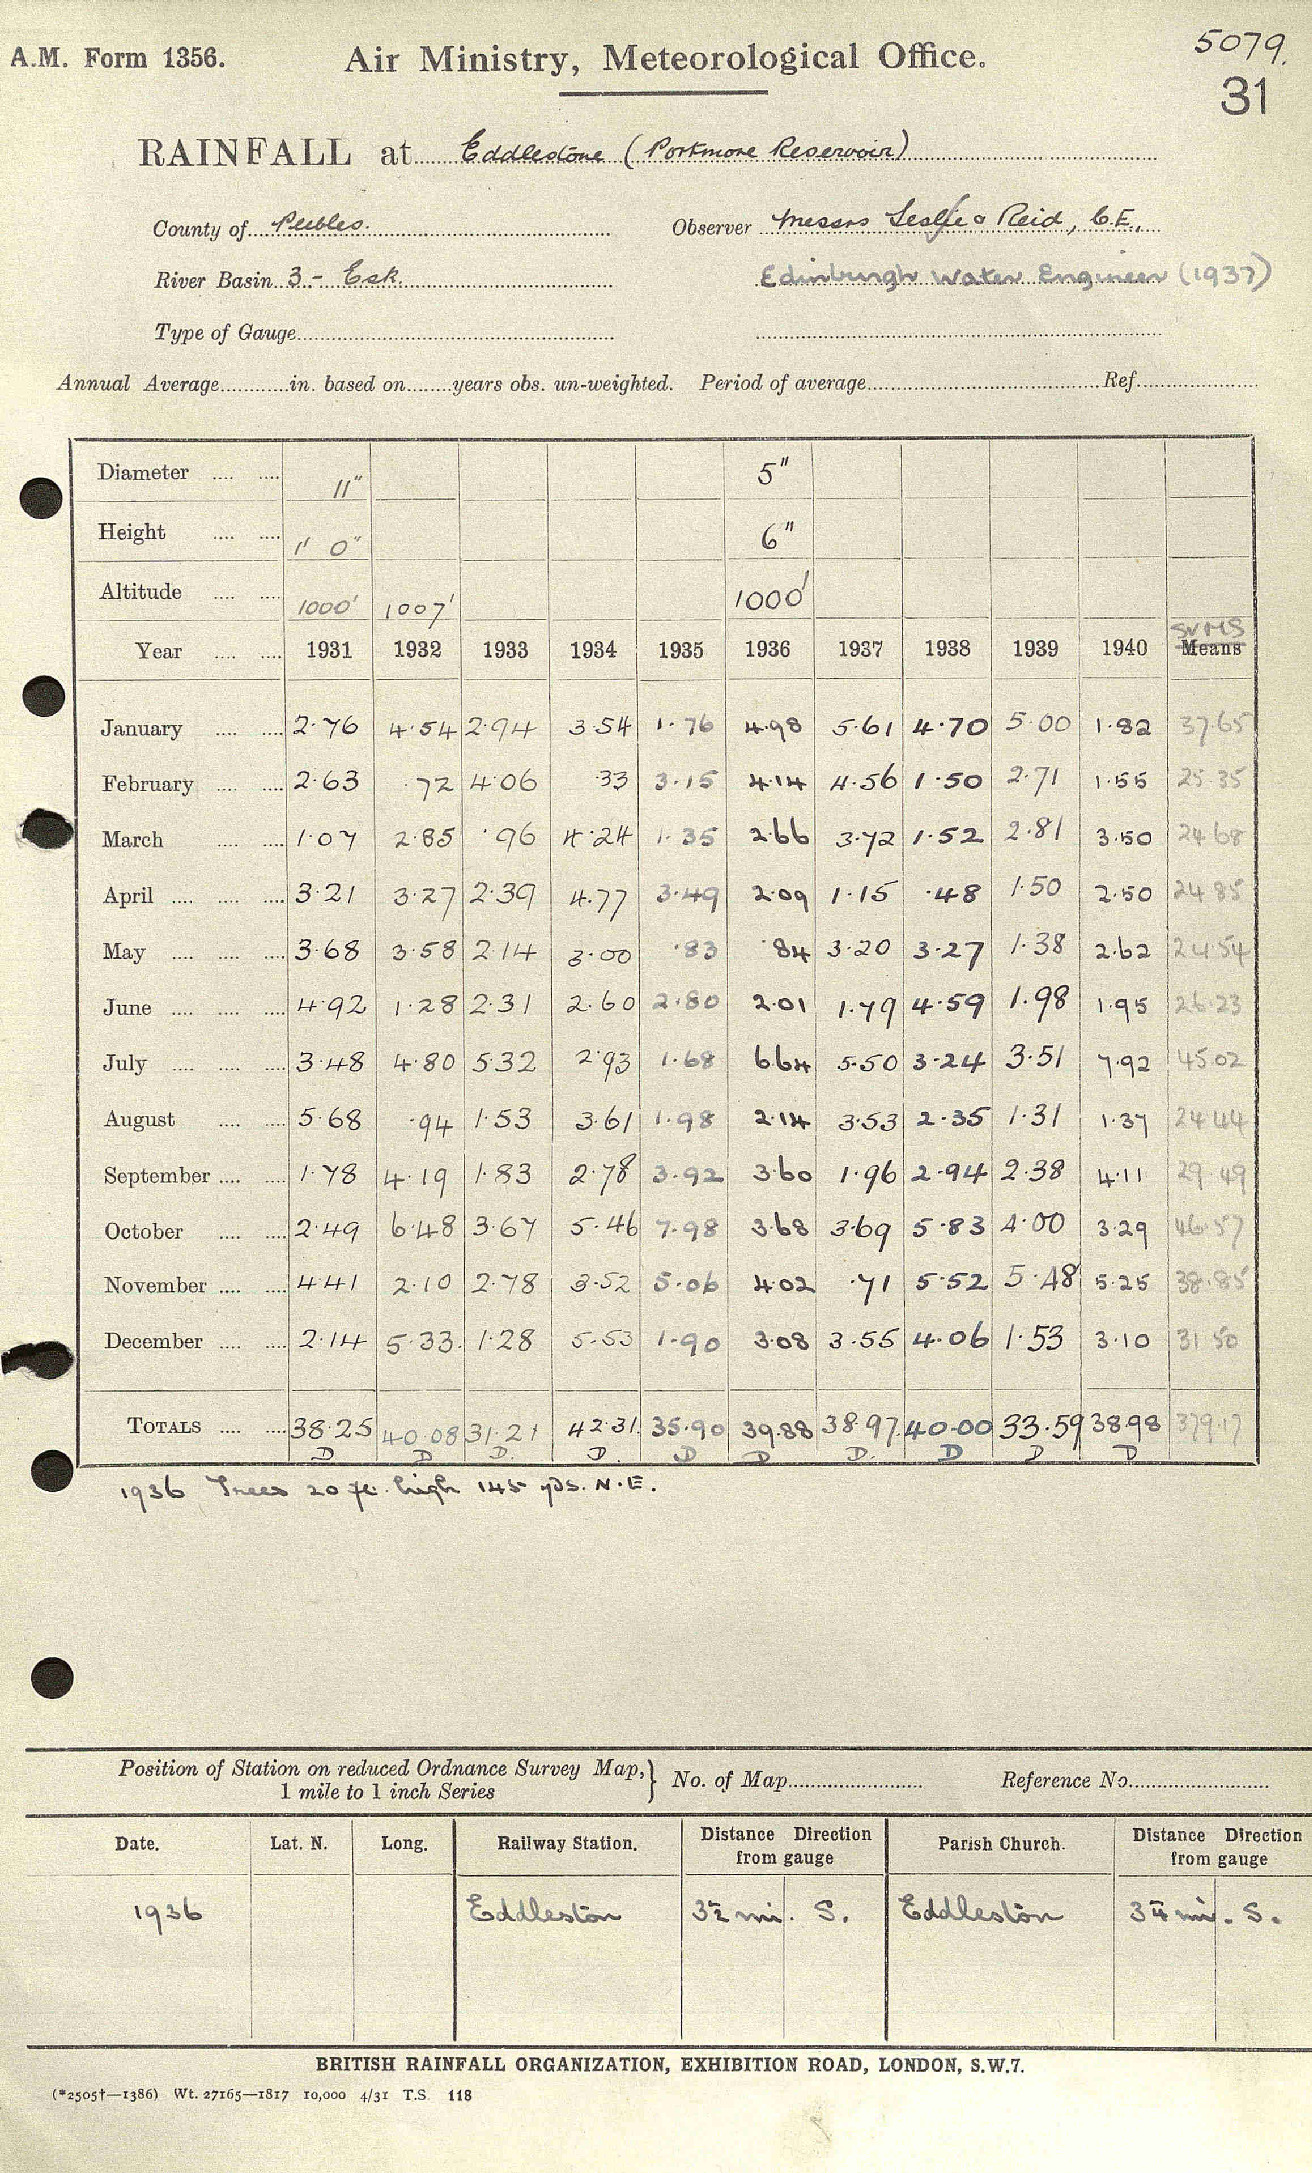 A.M. Form 1356.
Air Ministry, Meteorological Office.
5079.
31
RAINFALL at Eddlestone (Portmore Reservoir)
County of Peebles. Observer Messrs Leslie & Reid, C.E.,
River Basin 3 - Esk. Edinburgh Water Engineer (1937)
Type of Gauge
Annual Average in. based on years obs. un-weighted. Period of average Ref.
Diameter 11" 5"
Height 1' 0" 6"
Altitude 1000' 1007' 1000'
SUMS
Year 1931 1932 1933 1934 1935 1936 1937 1938 1939 1940 Means
January 2.76 4.54 2.94 3.54 1.76 4.98 5.61 4.70 5.00 1.82 37.65
February 2.63 .72 4.06 .33 3.15 4.14 4.56 1.50 2.71 1.55 25.35
March 1.07 2.85 .96 4.24 1.35 2.66 3.72 1.52 2.81 3.50 24.68
April 3.21 3.27 2.39 4.77 3.49 2.09 1.15 .48 1.50 2.50 24.85
May 3.68 3.58 2.14 3.00 .83 .84 3.20 3.27 1.38 2.62 24.54
June 4.92 1.28 2.31 2.60 2.80 2.01 1.79 4.59 1.98 1.95 26.23
July 3.48 4.80 5.32 2.93 1.68 6.64 5.50 3.24 3.51 7.92 45.02
August 5.68 .94 1.53 3.61 1.98 2.14 3.53 2.35 1.31 1.37 24.44
September 1.78 4.19 1.83 2.78 3.92 3.60 1.96 2.94 2.38 4.11 29.49
October 2.49 6.48 3.67 5.46 7.98 3.68 3.69 5.83 4.00 3.29 46.57
November 4.41 2.10 2.78 3.52 5.06 4.02 .71 5.52 5.48 5.25 38.85
December 2.14 5.33 1.28 5.53 1.90 3.08 3.55 4.06 1.53 3.10 31.50
TOTALS 38.25 40.08 31.21 42.31 35.90 39.88 38.97 40.00 33.59 38.98 379.17
D D D. D. D D D. D D D
1936 Trees 20 ft. high 145 yds. N.E.
Position of Station on reduced Ordnance Survey Map, 1 mile to 1 inch Series } No. of Map Reference No.
Date. Lat. N. Long. Railway Station. Distance Direction from gauge Parish Church. Distance Direction from gauge
1936 Eddleston 3½ mi. S. Eddleston 3¼ mi. S.
BRITISH RAINFALL ORGANIZATION, EXHIBITION ROAD, LONDON, S.W.7.
(*2505†—1386) Wt. 27165—1817 10,000 4/31 T.S. 118